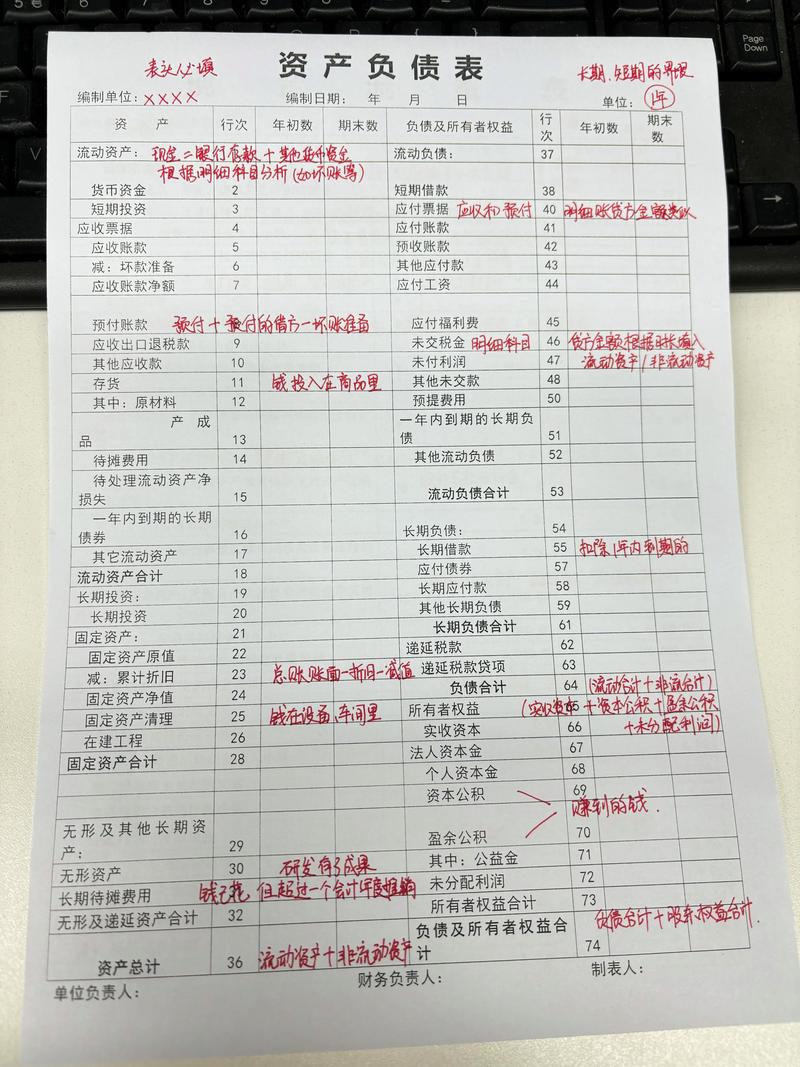 Page
Down
表头必填
资产负债表
长期、短期的界限
编制单位：XXXX
编制日期： 年 月 日
单位：
1年
资 产 行次 年初数 期末数 负债及所有者权益 行次 年初数 期末数
流动资产： 现金=银行存款+其他货币资金 流动负债： 37
根据明细科目分析(如坏账等)
货币资金 2 短期借款 38
短期投资 3 应付票据 应收和预付 40 明细账贷方金额类以
应收票据 4 应付账款 41
应收账款 5 预收账款 42
减：坏款准备 6 其他应付款 43
应收账款净额 7 应付工资 44
预付账款 预付+预付的借方-坏账准备 应付福利费 45
应收出口退税款 9 未交税金 明细科目 46 贷方金额根据时长填入
其他应收款 10 未付利润 47 流动资产/非流动资产
存货 11 钱投入在商品里 其他未交款 48
其中：原材料 12 预提费用 50
产成品 13 一年内到期的长期负债 51
待摊费用 14 其他流动负债 52
待处理流动资产净损失 15 流动负债合计 53
一年内到期的长期债券 16 长期负债： 54
其它流动资产 17 长期借款 55 扣除1年内到期的
流动资产合计 18 应付债券 57
长期投资： 19 长期应付款 58
长期投资 20 其他长期负债 59
固定资产： 21 长期负债合计 61
固定资产原值 22 递延税款 62
减：累计折旧 23 总账账面-折旧-减值 递延税款贷项 63
固定资产净值 24 负债合计 64 (流动合计+非流合计)
固定资产清理 25 钱在设备、车间里 所有者权益 65 (实收资本+资本公积+盈余公积
在建工程 26 实收资本 66 +未分配利润)
固定资产合计 28 法人资本金 67
个人资本金 68
资本公积 69
赚到的钱
无形及其他长期资产： 29 盈余公积 70
无形资产 30 研发有了成果 其中：公益金 71
长期待摊费用 钱已花 但超过一个会计年度摊销 未分配利润 72
无形及递延资产合计 32 所有者权益合计 73
负债合计+股东权益合计.
资产总计 36 流动资产+非流动资产 负债及所有者权益合计 74
单位负责人： 财务负责人： 制表人：